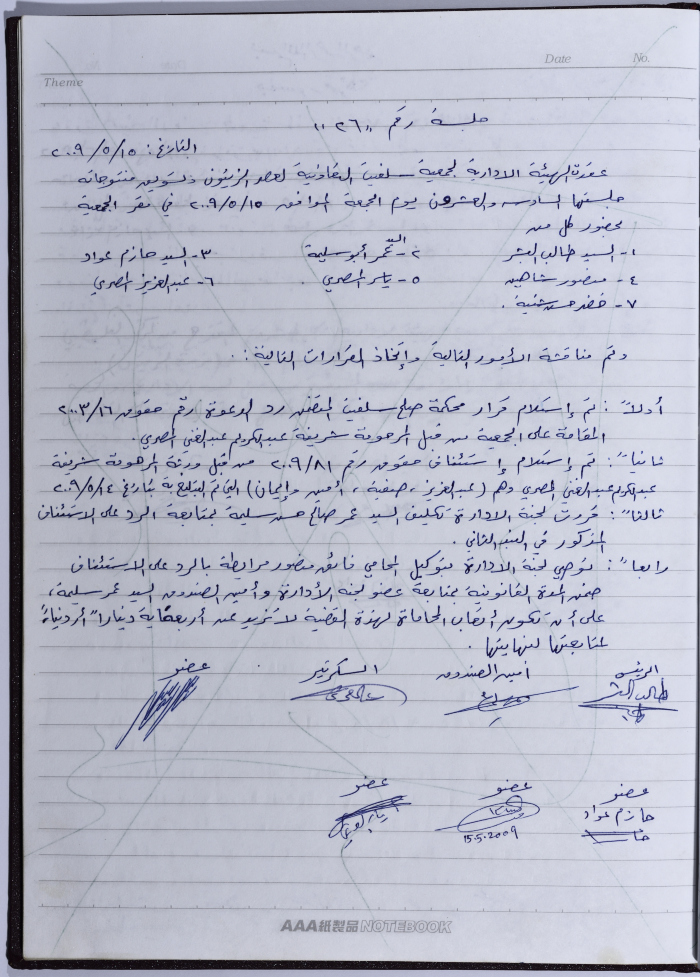 Date No.
Theme
جلسة رقم "٢٦"
التاريخ: ٢٠٠٩/٥/١٥
عقدت الهيئة الادارية لجمعية سلفيت التعاونية لعصر الزيتون وتسويق منتوجاته
جلستها السادسه والعشرون يوم الجمعة الموافق ٢٠٠٩/٥/١٥ في مقر الجمعية
بحضور كل من
١- السيد طالب البشر ٢- السيد عمر أبو سليمة ٣- السيد حازم عواد
٤- منصور شاهين ٥- ياسر المصري ٦- عبد العزيز المصري
٧- خضر حسن شتية .
وتم مناقشة الأمور التالية وإتخاذ القرارات التالية :.
أولاً : تم إستلام قرار محكمة صلح سلفيت المتضمن رد الدعوة رقم حقوق ٢٠٠٣/١٦
المقامة على الجمعية من قبل المرحومة شريفة عبد الكريم عبد الغني المصري .
ثانياً : تم إستلام إستئناف حقوق رقم ٢٠٠٩/٨١ من قبل ورثة المرحومة شريفة
عبد الكريم عبد الغني المصري وهم (عبد العزيز ، صفية ، أيمن وإيمان) التي تم التبليغ به بتاريخ ٢٠٠٩/٥/١٤
ثالثاً : قررت لجنة الادارة تكليف السيد عمر صالح حسن سليمة بمتابعة الرد على الاستئناف
المذكور في البند الثاني .
رابعاً : توصي لجنة الادارة بتوكيل المحامي فائق منصور مرابطة بالرد على الاستئناف
ضمن المدة القانونية بمتابعة عضو لجنة الأدارة وأمين الصندوق السيد عمر سليمة ،
على أن تكون أتعاب المحاماة لهذه القضية لا تزيد عن أربعماية ديناراً أردنياً
لمتابعتها لنهايتها .
الرئيس أمين الصندوق السكرتير عضو
طالب البشر
عضو عضو عضو
حازم عواد
15.5.2009
AAA紙製品 NOTEBOOK